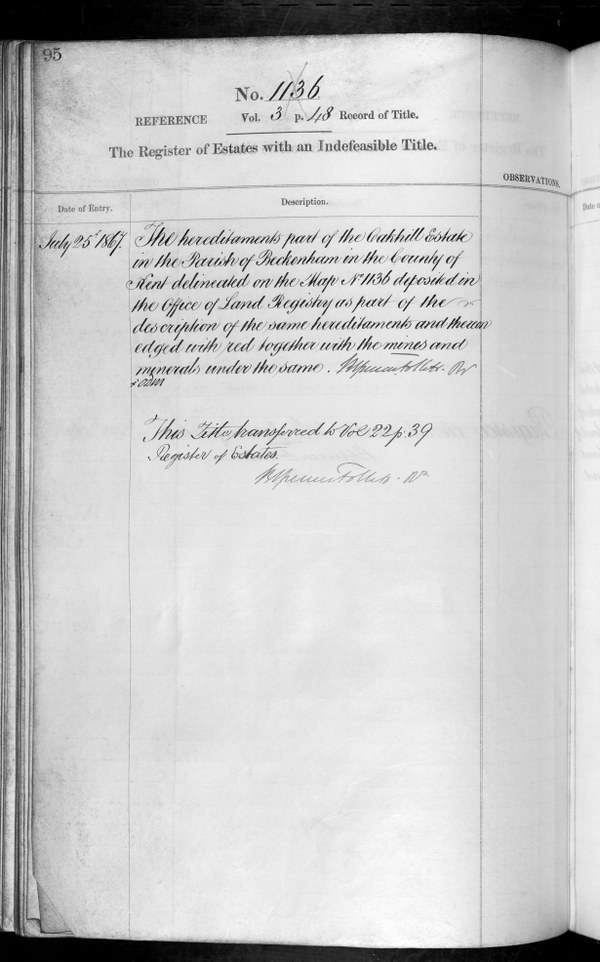 95
No. 1136
REFERENCE Vol. 3 p. 48 Record of Title.
The Register of Estates with an Indefeasible Title.
OBSERVATIONS.
Date of Entry.
Description.
July 25th 1867.
The hereditaments part of the Oakhill Estate
in the Parish of Beckenham in the County of
Kent delineated on the Map No 1136 deposited in
the Office of Land Registry as part of the
description of the same hereditaments and thereon
edged with red together with the mines and
minerals under the same. Follett
This Title transferred to Vol 22 p. 39
Register of Estates.
Follett